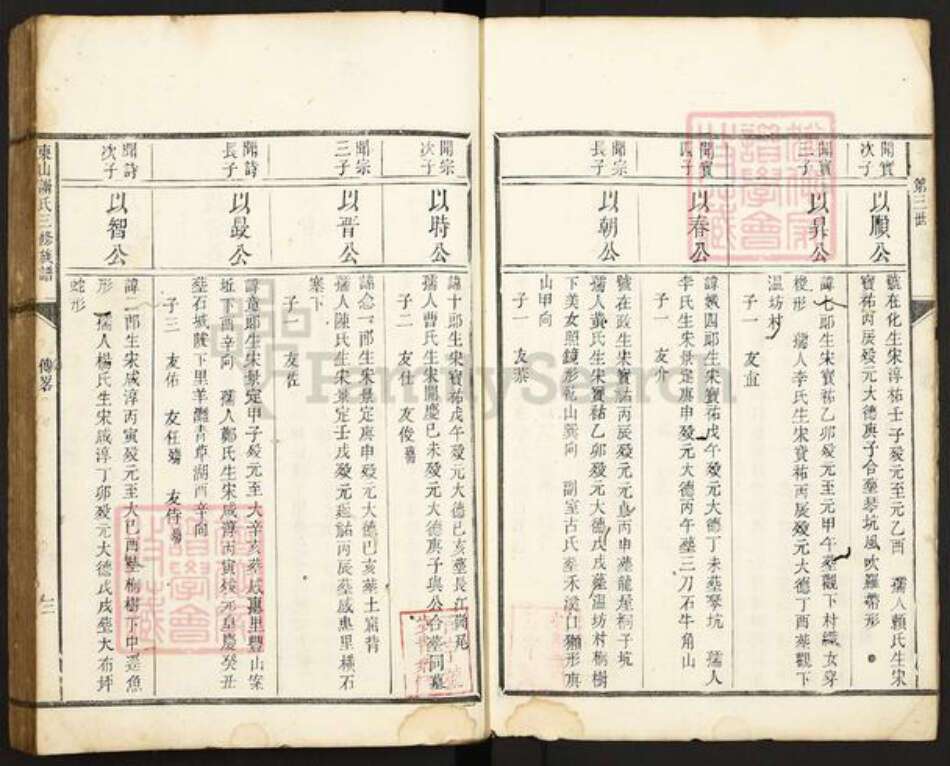 第三世
開寶次子
以願公
號在化生宋淳祐壬子歿元至元乙酉　孺人賴氏生宋
寶祐丙辰歿元大德庚子合塟琴坑風吹羅帶形
開寶三子
以昇公
諱七郎生宋寶祐乙卯歿元至元甲午塟觀下村織女穿
梭形　孺人李氏生宋寶祐丙辰歿元大德丁酉塟觀下
温坊村
子一　友
開寶四子
以春公
諱娥四郎生宋寶祐戊午歿元大德丁未塟琴坑　孺人
李氏生宋景定庚申歿元大德丙午塟三刀石牛角山
子一　友介
開宗長子
以朝公
號在政生宋寶祐丙辰歿元 丙申塟龍屋桐子坑
孺人黄氏生宋寶祐乙卯歿元大德戊戌塟温坊村桐樹
下美女照鏡形乾山巽向　副室古氏塟禾溪口獺形庚
山甲向
子一　友恭
開宗次子
以時公
諱十郎生宋寶祐戊午歿元大德己亥塟長江 尾
孺人曹氏生宋開慶己未歿元大德庚子與公合塟同墓
子二　友仕　友俊
開宗三子
以晋公
諱念一郎生宋景定庚申歿元大德己亥塟土 背
孺人陳氏生宋景定壬戌歿元延祐丙辰塟感惠里橫石
寨下
子一　友
開詩長子
以最公
諱 郎生宋景定甲子歿元至大辛亥塟感惠里豐山案
坵下酉辛向　孺人鄭氏生宋咸淳丙寅歿元皇慶癸丑
塟石城陂下里羊灘青草湖酉辛向
子三　友佑　友任 　友侍
開詩次子
以智公
諱二郎生宋咸淳丙寅歿元至大己酉塟桐樹下中 魚
形　孺人楊氏生宋咸淳丁卯歿元大德戊戌塟大布坪
蛇形
東山蕭氏三修族譜
傳畧
三
FamilySearch